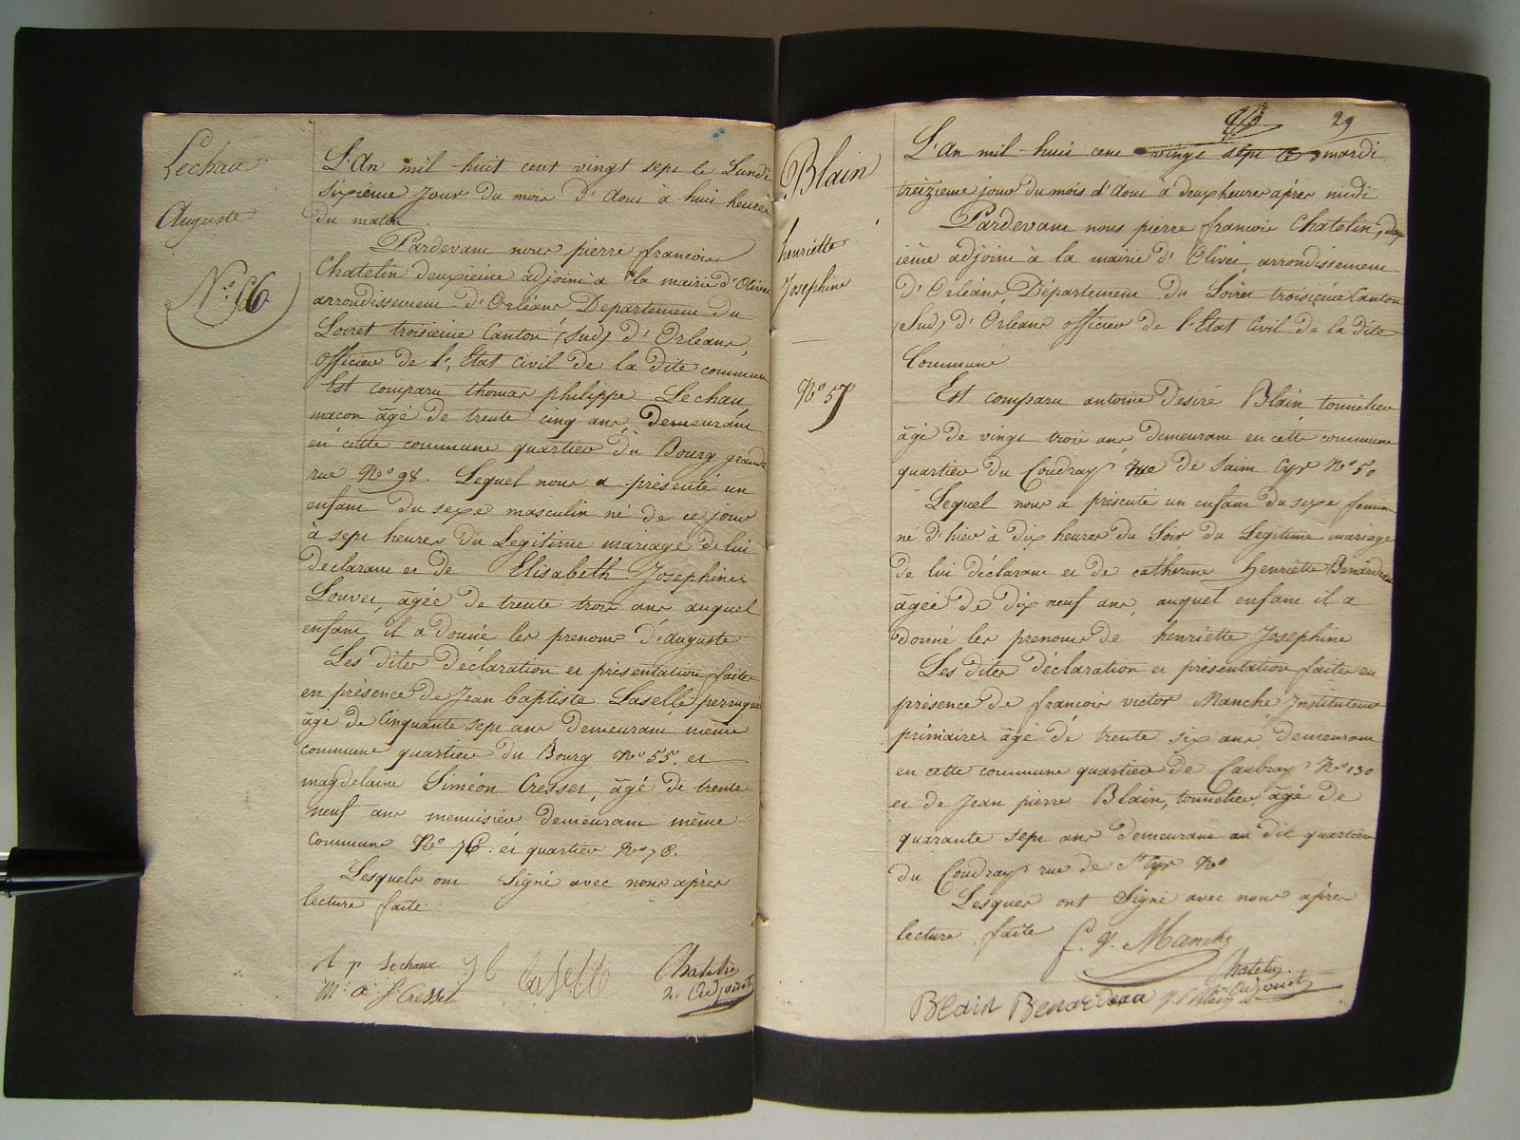 Lechau
Auguste
N.º 66
L'An mil huit cent vingt sept le Lundi
sixieme jour du mois d'aout à huit heures
du matin
Pardevant nous pierre francois
Chatelin deuxieme adjoint a la mairie d'Olivet
arrondissement d'Orléans Departement du
Loiret troisieme Canton (Sud) d'Orleans,
officier de l'Etat civil de la dite commune
Est comparu thomas philippe Lechau
macon âgé de trente cinq ans demeurant
en cette commune quartier du Bourg grande
rue No 98. Lequel nous a présenté un
enfant du sexe masculin né de ce jour
à sept heures du Legitime mariage de lui
declarant et de Elisabeth Josephine
Louvet, âgée de trente trois ans auquel
enfant il a donné les prenoms d'auguste
Les dites déclaration et présentation faites
en présence de Jean baptiste Laselle perruquier
âgé de Cinquante sept ans demeurant même
commune quartier du Bourg No 55. et
magdelaine Siméon Cresset, âgé de trente
neuf ans menuisier demeurant même
commune No 76. et quartier No 78.
Lesquels ont Signé avec nous après
lecture faite
t p Lechaux Laselle Chatelin
M. a S. Cresset 2e adjoint
29
Blain
henriette
Josephine
No 57
L'An mil huit cent vingt sept le mardi
treizieme jour du mois d'aout à deux heures après midi
Pardevant nous pierre francois Chatelin, deux
ième adjoint à la mairie d'Olivet arrondissement
D'Orléans, Département du Loiret troisieme Canton
(Sud) d'Orleans officier de l'Etat Civil de la dite
Commune
Est comparu antoine Desiré Blain tonnelier
âgé de vingt trois ans demeurant en cette commune
quartier du Coudray rue de Saint Cyr No 50
Lequel nous a présenté un enfant du sexe femin
né d'hier à dix heures du Soir du Legitime mariage
de lui déclarant et de cathérine Henriette
âgée de dix neuf ans, auquel enfant il a
donné les prenoms de henriette Josephine
Les dites déclaration et présentation faites en
présence de francois victor Manche Instituteur
primaire âgé de trente six ans demeurant
en cette commune quartier de No 130
et de Jean pierre Blain, tonnelier âgé de
quarante sept ans demeurant au dit quartier
du Coudray rue de St Cyr No
Lesquels ont Signé avec nous après
lecture faite Manche
Chatelin
Blain Benardeau adjoint